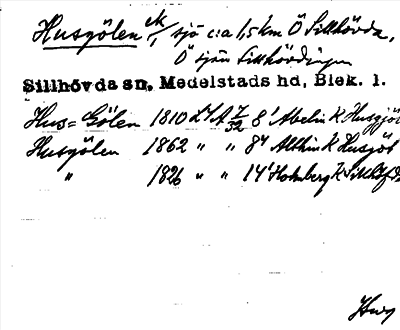 Husgölen ek/1 sjö c:a 1,5 km Ö Sillhövda,
Ö sjön Sillhövdingen
Sillhövda sn, Medelstads hd, Blek. l.
Hus=Gölen 1810 LSA 7/32 8' Abelin K Husgjöl
Husgölen 1862 " " 84 Althin K Husgöl
" 1826 " " 14' Holmberg K Sillhöfda